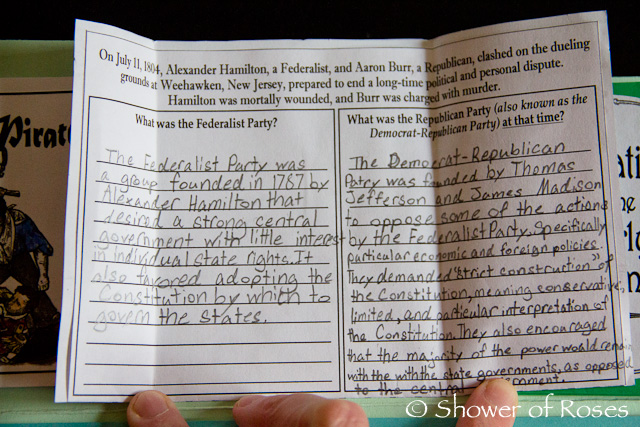 On July 11, 1804, Alexander Hamilton, a Federalist, and Aaron Burr, a Republican, clashed on the dueling
grounds at Weehawken, New Jersey, prepared to end a long-time political and personal dispute.
Hamilton was mortally wounded, and Burr was charged with murder.
What was the Federalist Party?
The Federalist Party was
a group founded in 1787 by
Alexander Hamilton that
desired a strong central
government with little interest
in individual state rights. It
also favored adopting the
Constitution by which to
govern the states.
What was the Republican Party (also known as the
Democrat-Republican Party) at that time?
The Democrat-Republican
Patry was founded by Thomas
Jefferson and James Madison
to oppose some of the actions
by the Federalist Party. Specifically
particular economic and foreign policies.
They demanded "strict construction" of
the Constitution, meaning conservative,
limited, and particular interpretation of
the Constitution. They also encouraged
that the majority of the power would remain
with the with the state governments, as opposed
to the central government.
Pirat
© Shower of Roses